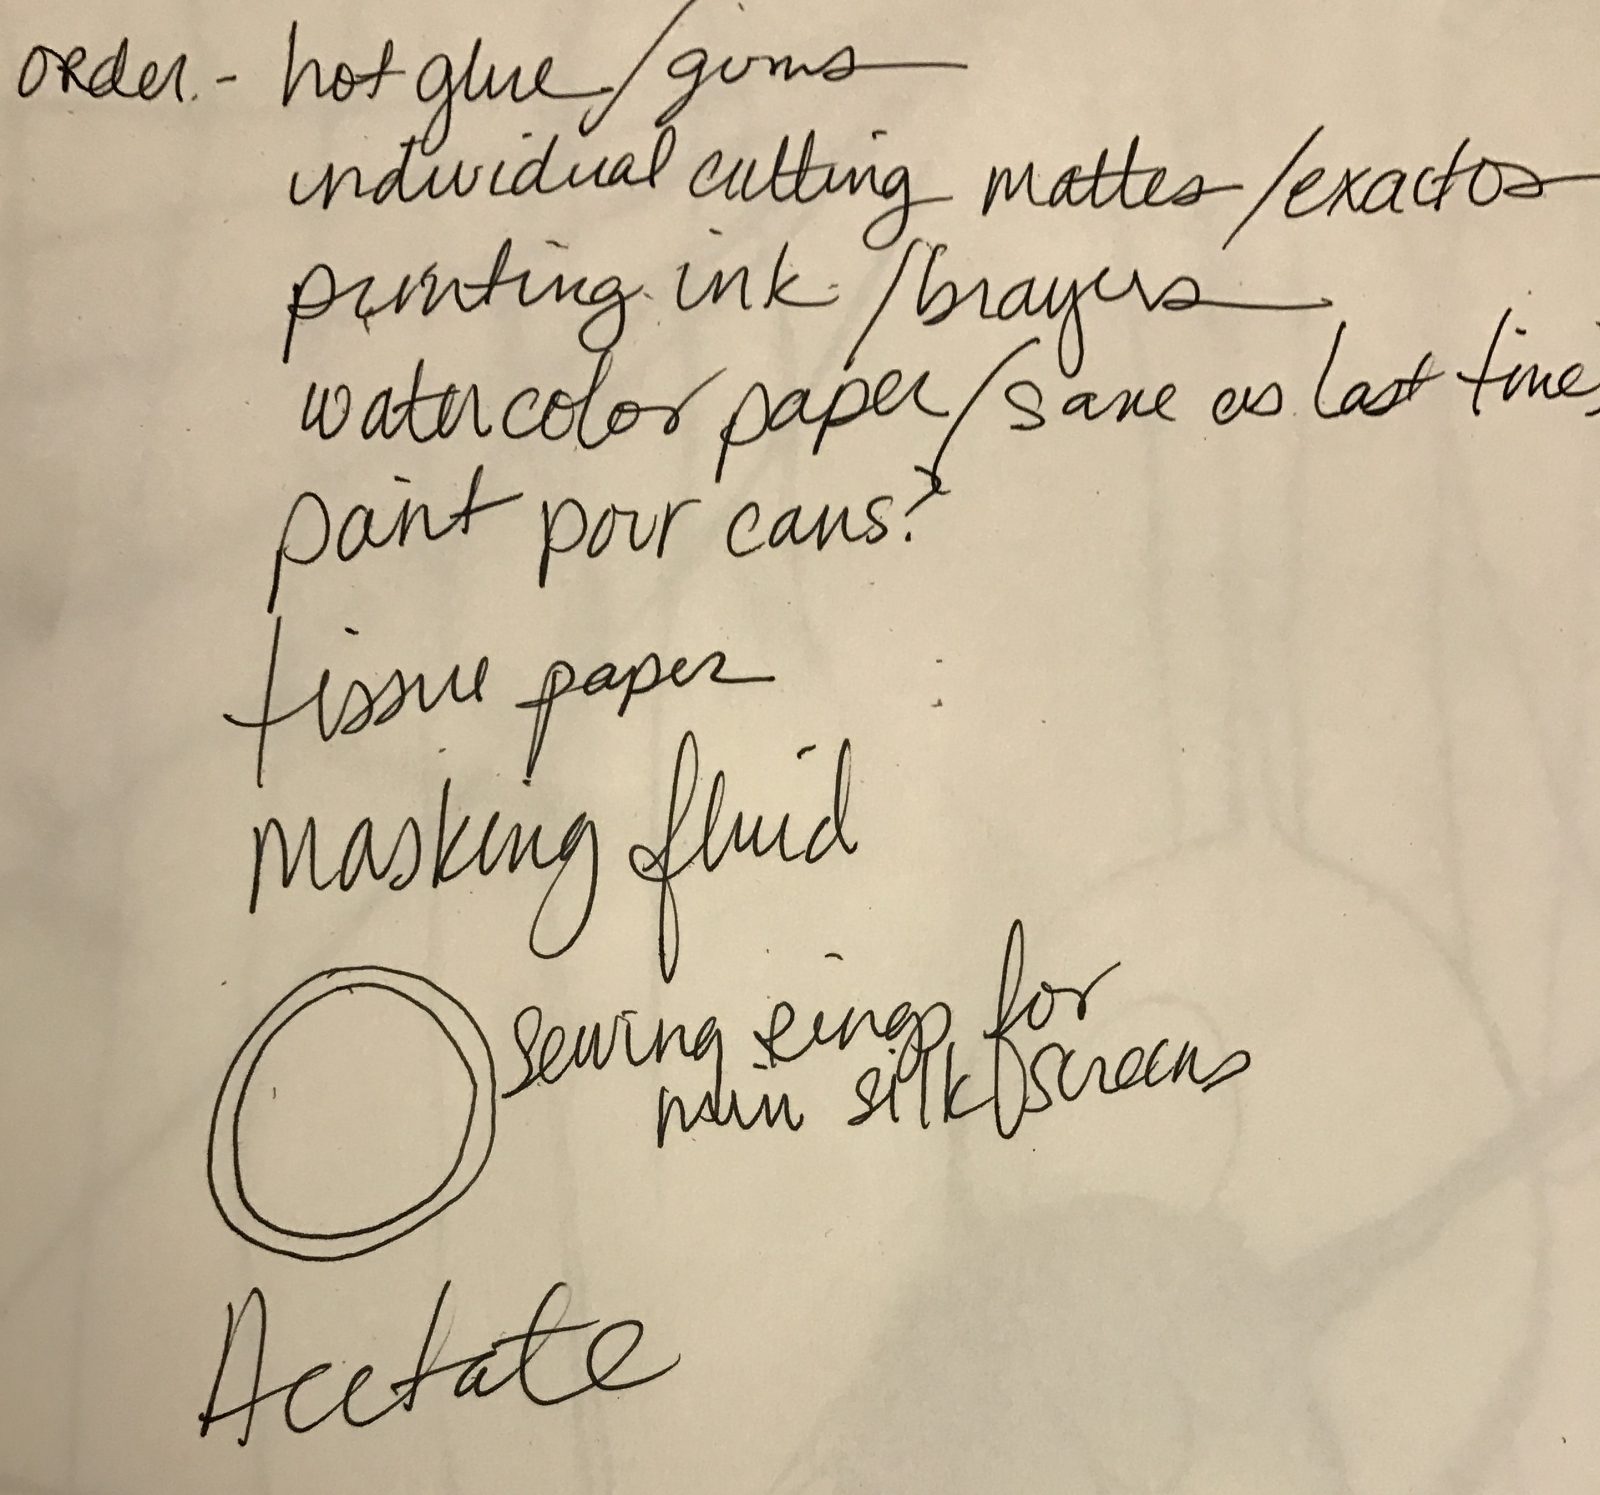 order. - hot glue / guns
individual cutting mattes / exactos
printing ink / brayers
watercolor paper / same as last time
paint pour cans?
tissue paper
masking fluid
sewing rings for
mini silk screens
Acetate